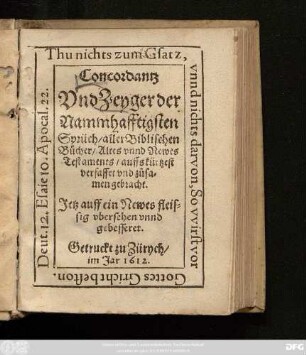 Thu nichts zum Gsatz,
vnnd nichts darvon, So wirst vor
Gottes Gricht beston.
Deut. 12. Esaie 10. Apocal. 22.
Concordantz
Vnd Zeyger der
Nammhafftigsten
Sprüch / aller Biblischen
Bücher / Altes vnnd Newes
Testaments / auffs kürtzest
verfasset vnd züsa-
men gebracht.
Jetz auff ein Newes fleis-
sig vbersehen vnnd
gebesseret.
Getruckt zu Zürych /
im Jar 1612.